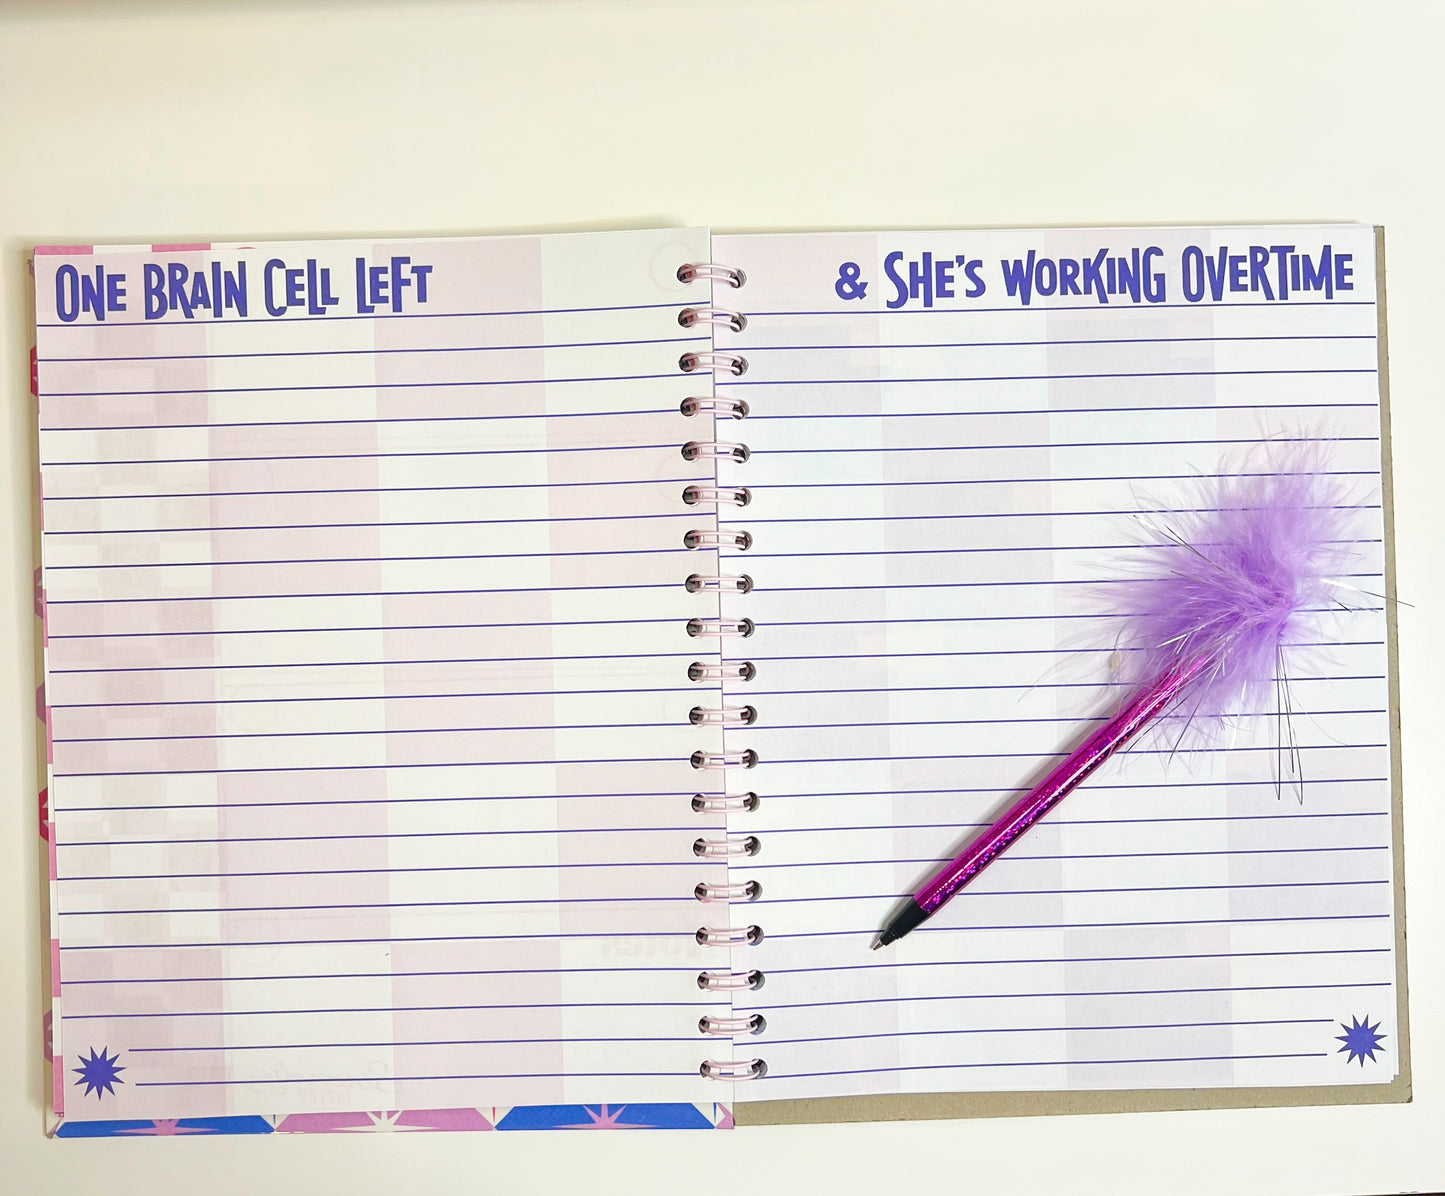 ONE BRAIN CELL LEFT
& SHE'S WORKING OVERTIME